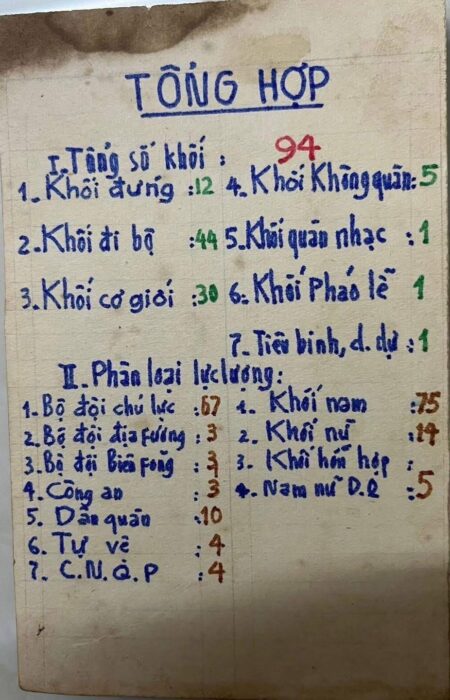 TỔNG HỢP
I. Tổng số khối : 94
1. Khối đứng : 12
2. Khối đi bộ : 44
3. Khối cơ giới : 30
4. Khối Không quân : 5
5. Khối quân nhạc : 1
6. Khối Pháo lễ 1
7. Tiêu binh, d. dự : 1
II. Phân loại lực lượng :
1. Bộ đội chủ lực : 67
2. Bộ đội địa fương : 3
3. Bộ đội Biên fòng : 3
4. Công an : 3
5. Dân quân : 10
6. Tự vệ : 4
7. C.N.Q.P : 4
1. Khối nam : 75
2. Khối nữ : 14
3. Khối hỗn hợp :
4. Nam nữ D.Q : 5